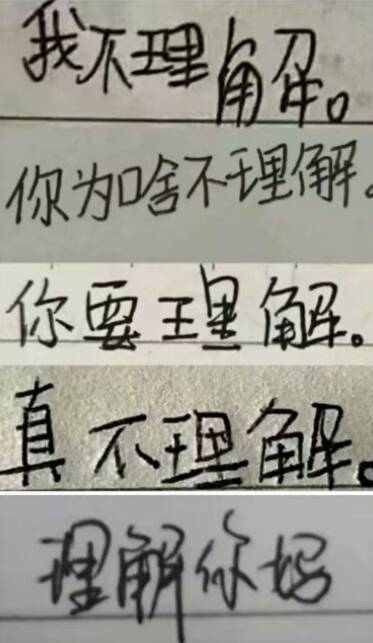 我不理解。
你为啥不理解。
你要理解。
真不理解。
理解你妈